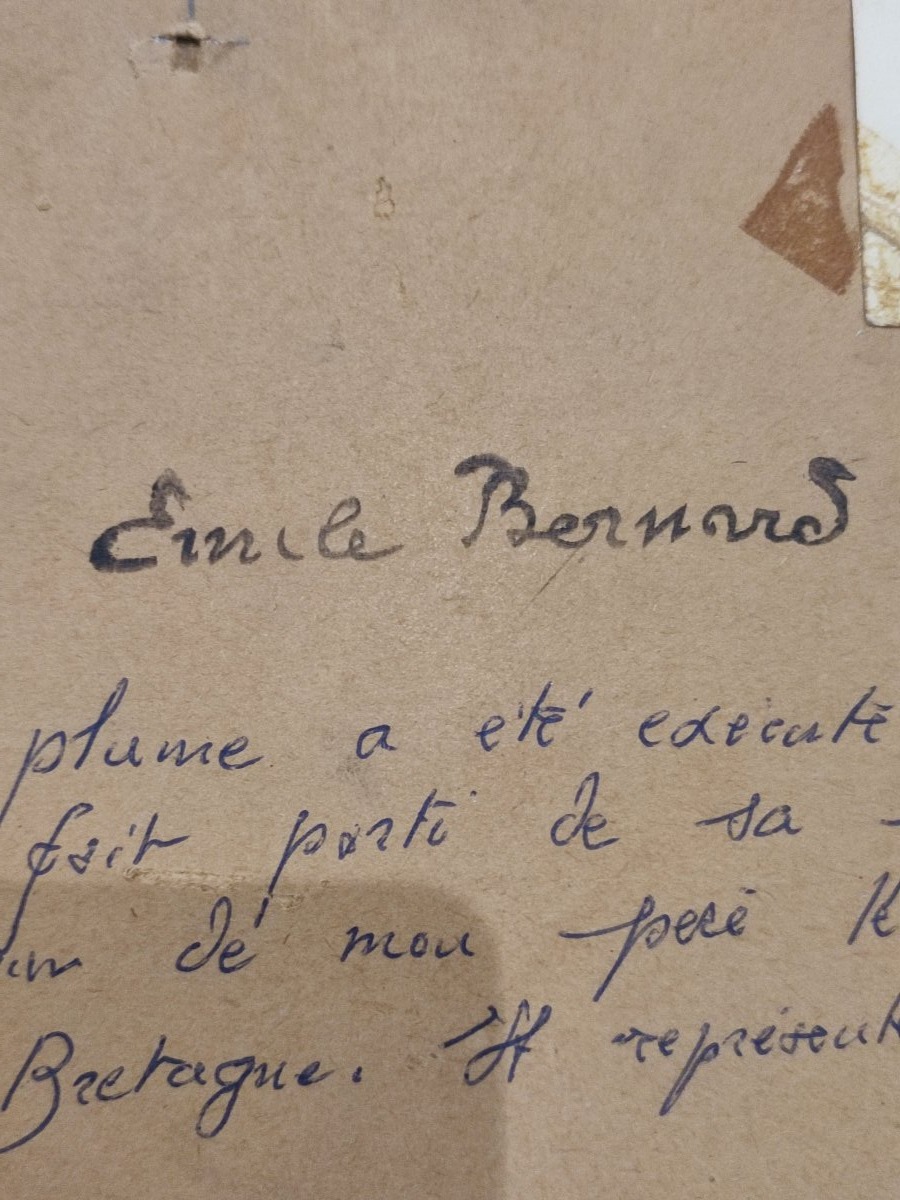 Emile Bernard
plume a été exécuté
fait parti de sa
de mon père
Bretagne. Il représent